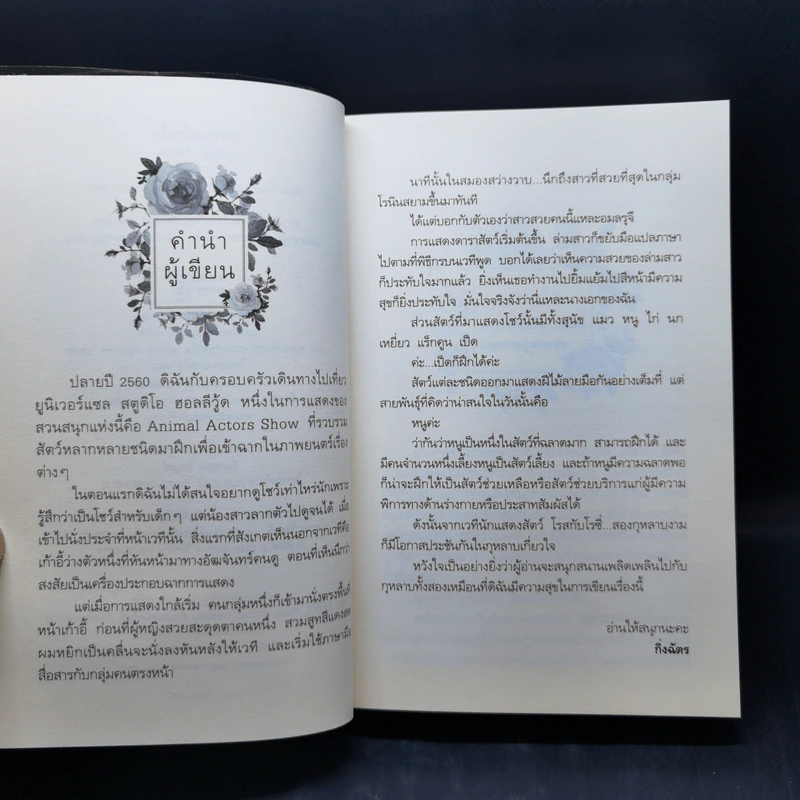 คำนำ
ผู้เขียน
ปลายปี 2560 ดิฉันกับครอบครัวเดินทางไปเที่ยว
ยูนิเวอร์แซล สตูดิโอ ฮอลลีวู้ด หนึ่งในการแสดงของ
สวนสนุกแห่งนี้คือ Animal Actors Show ที่รวบรวม
สัตว์หลากหลายชนิดมาฝึกเพื่อเข้าฉากในภาพยนตร์เรื่อง
ต่างๆ
ในตอนแรกดิฉันไม่ได้สนใจอยากดูโชว์เท่าไหร่นักเพราะ
รู้สึกว่าเป็นโชว์สำหรับเด็กๆ แต่น้องสาวลากตัวไปดูจนได้ เมื่อ
เข้าไปนั่งประจำที่หน้าเวทีนั้น สิ่งแรกที่สังเกตเห็นนอกจากเวทีคือ
เก้าอี้ว่างตัวหนึ่งที่หันหน้ามาทางอัฒจันทร์คนดู ตอนที่เห็นนึกว่า
สงสัยเป็นเครื่องประกอบฉากการแสดง
แต่เมื่อการแสดงใกล้เริ่ม คนกลุ่มหนึ่งก็เข้ามานั่งตรงพื้นที่
หน้าเก้าอี้ ก่อนที่ผู้หญิงสวยสะดุดตาคนหนึ่ง สวมสูทสีแดงสด
ผมหยิกเป็นคลื่นจะนั่งลงหันหลังให้เวที และเริ่มใช้ภาษามือ
สื่อสารกับกลุ่มคนตรงหน้า
นาทีนั้นในสมองสว่างวาบ...นึกถึงสาวที่สวยที่สุดในกลุ่ม
โรนินสยามขึ้นมาทันที
ได้แต่บอกกับตัวเองว่าสาวสวยคนนี้แหละอมลรุจี
การแสดงดาราสัตว์เริ่มต้นขึ้น ล่ามสาวก็ขยับมือแปลภาษา
ไปตามที่พิธีกรบนเวทีพูด บอกได้เลยว่าเห็นความสวยของล่ามสาว
ก็ประทับใจมากแล้ว ยิ่งเห็นเธอทำงานไปยิ้มแย้มไปสีหน้ามีความ
สุขก็ยิ่งประทับใจ มั่นใจจริงจังว่านี่แหละนางเอกของฉัน
ส่วนสัตว์ที่มาแสดงโชว์นั้นมีทั้งสุนัข แมว หนู ไก่ นก
เหยี่ยว แร็กคูน เป็ด
ค่ะ...เป็ดก็ฝึกได้ค่ะ
สัตว์แต่ละชนิดออกมาแสดงฝีไม้ลายมือกันอย่างเต็มที่ แต่
สายพันธุ์ที่คิดว่าน่าสนใจในวันนั้นคือ
หนูค่ะ
ว่ากันว่าหนูเป็นหนึ่งในสัตว์ที่ฉลาดมาก สามารถฝึกได้ และ
มีคนจำนวนหนึ่งเลี้ยงหนูเป็นสัตว์เลี้ยง และถ้าหนูมีความฉลาดพอ
ก็น่าจะฝึกให้เป็นสัตว์ช่วยเหลือหรือสัตว์ช่วยบริการแก่ผู้มีความ
พิการทางด้านร่างกายหรือประสาทสัมผัสได้
ดังนั้นจากเวทีนักแสดงสัตว์ โรสกับโรซี่...สองกุหลาบงาม
ก็มีโอกาสประชันกันในกุหลาบเกี่ยวใจ
หวังใจเป็นอย่างยิ่งว่าผู้อ่านจะสนุกสนานเพลิดเพลินไปกับ
กุหลาบทั้งสองเหมือนที่ดิฉันมีความสุขในการเขียนเรื่องนี้
อ่านให้สนุกนะคะ
กิ่งฉัตร